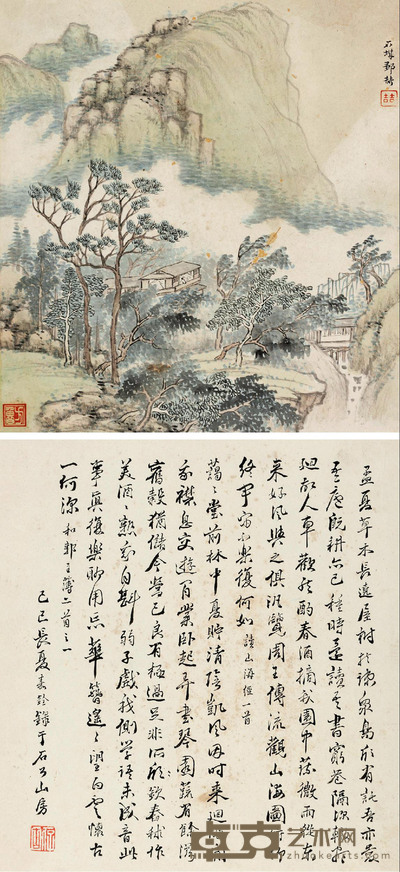 石城鄒喆
孟夏草木長遶屋樹扶疎衆鳥欣有託吾亦愛
吾廬既耕亦已種時還讀我書窮巷隔深轍頗
迴故人車歡然酌春酒摘我園中蔬微雨從東
來好風與之俱汎覽周王傳流觀山海圖俯仰
終宇宙不樂復何如 讀山海經一首
藹〻堂前林中夏貯清陰凱風因時來迴飇開
我襟息交遊閒業卧起弄書琴園蔬有餘滋
舊穀猶儲今營己良有極過足非所欽舂秫作
美酒〻熟吾自斟弱子戲我側學語未成音此
事真復樂聊用忘華簪遥〻望白雲懷古
一何深 和郭主簿二首之一
己巳長夏 錄于石 山房
艺术网